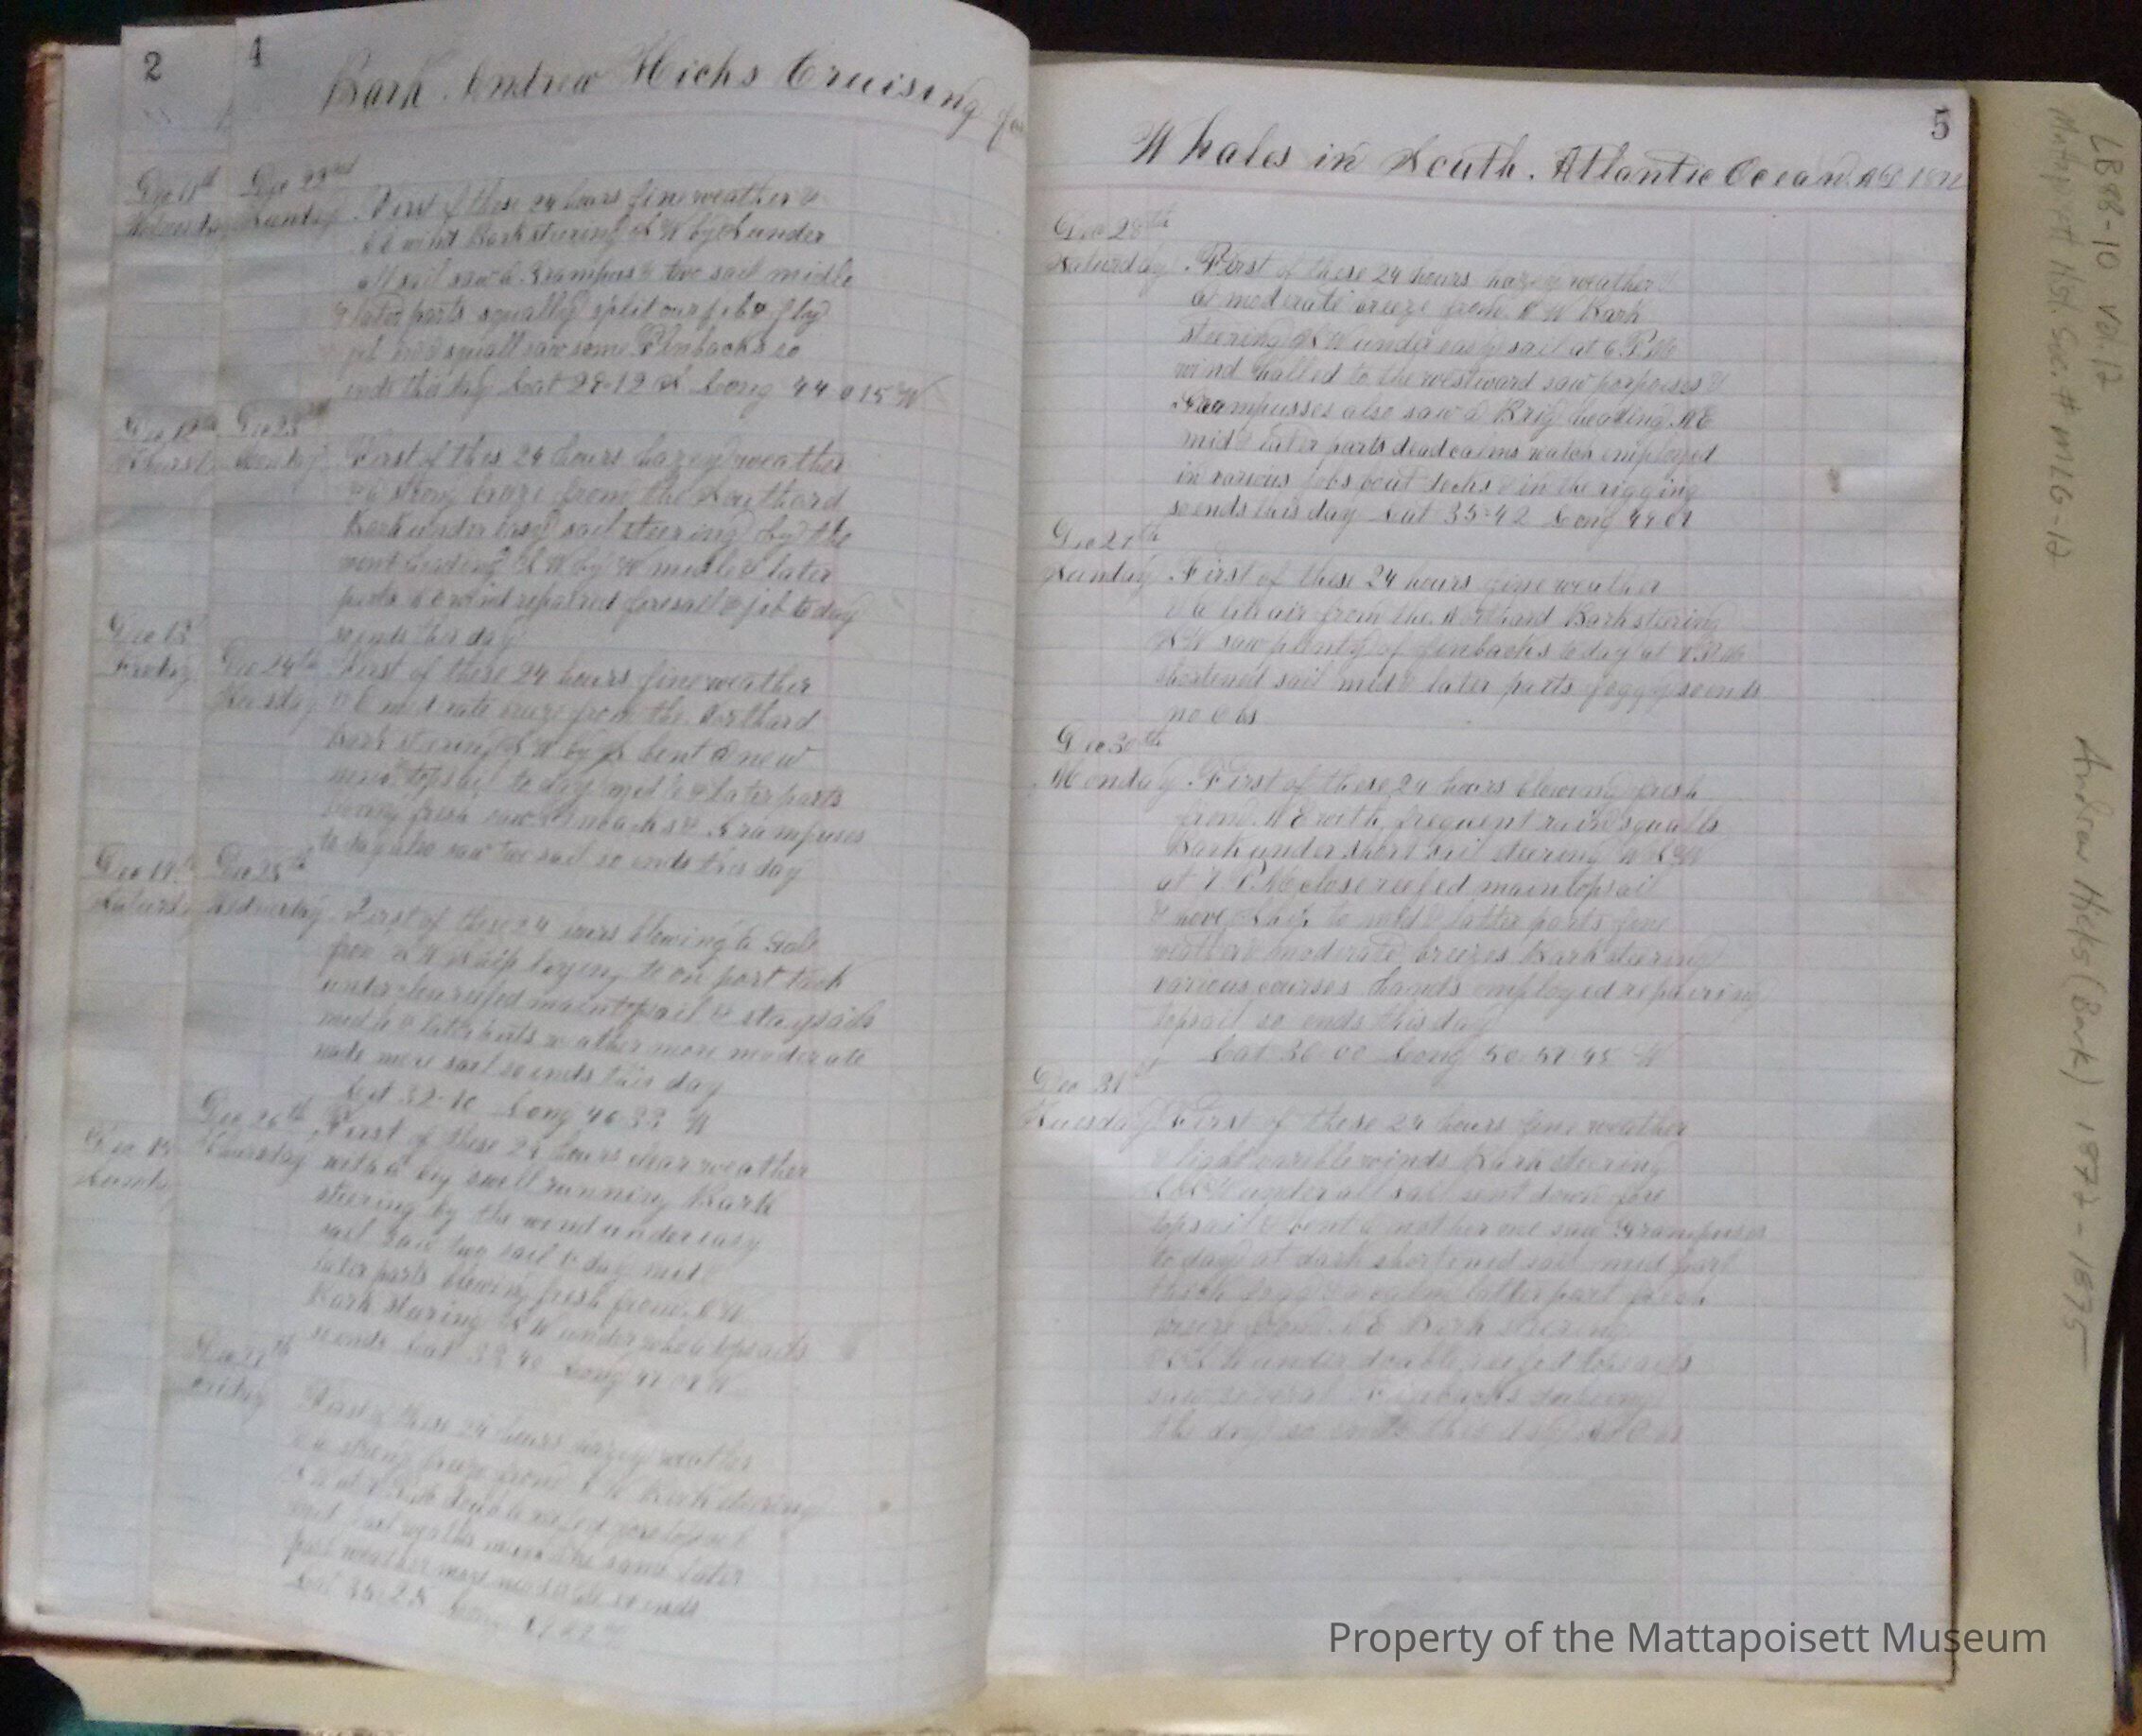 2
Dec 11th
Wednesday
Dec 12th
Thurs
Dec 13
Friday
Dec 14th
Saturd
Dec 15
Sunday
4
Bark Andrew Hicks Cruising for
Dec 22nd
Sunday First of these 24 hours fine weather &
wind Bark steering S W by S under
all sail saw a Grampus & two sail midle
& later parts squally split our jib & flyg
jib in a squall saw some Finbacks so
ends this day Lat 29-12 S Long 44 0 15 W
Dec 23
Monday First of thes 24 hours hazey weather
& a strong breze from the Southard
Bark under easy sail steering by the
wint heading S W by W midle & later
parts wind repaired foresail & jib to day
so ends this day
Dec 24th First of these 24 hours fine weather
Tuesday & a mod rate breze from the Northard
Bark steering S W by S bent a new
main topsail to day mid le & later parts
blowing fresh saw Finbacks & Grampuses
to day also saw two sail so ends this day
Dec 25th
Wednesday First of these 24 hours blowing a Gale
from S W Ship laying to on port tack
under close reefed maintopsail & staysails
midle & latter parts weather more moderate
made more sail so ends this day
Lat 32-10 Long 46 33 W
Dec 26th First of these 24 hours clear weather
Thursday with a big swell running Bark
steering by the wind under easy
sail saw two sail to day mid &
later parts blowing fresh from
Bark staring S W under whole topsails
so ends Lat 33 40 Long 47 W
Dec 27th
Friday First of these 24 hours hazey weather
& a strong breze from Bark steering
double reefed foretopsail
mid part weather the same later
part weather more moderate so ends
Lat 35-25 Long
5
Whales in South Atlantic Ocean AD 1872
Dec 28th
Saturday First of these 24 hours hazey weather &
a moderate breeze from N W Bark
steering S W under easy sail at 6 P.M
wind halled to the westward saw porpoises &
Grampusses also saw a Brig heading NE
mid & later parts dead calms watch employed
in various jobs bout decks & in the rigging
so ends this day Lat 35-42 Long 49 01
Dec 29th
Sunday First of these 24 hours fine weather
& a lite air from the Northard Bark steering
S W saw plenty of finbacks to day at 7 P.M
shortened sail mid & later parts foggy so ends
no Obs
Dec 30th
Monday First of these 24 hours blowing fresh
from N E with frequent rain squalls
Bark under short sail steering W S W
at 7 P.M close reefed maintopsail
& hove Ship to mid & latter parts fine
weather & moderate breezes Bark steering
various courses hands employed repairing
topsail so ends this day
Lat 36 00 Long 50-57-45 W
Dec 31st
Tuesday First of these 24 hours fine weather
& light varible winds Bark steering
under all sail sent down fore
topsail & bent a nother one saw Grampuses
to day at dark shortened sail mid part
thick fogg & calm latter part fresh
breeze from N E Bark steering
under double reefed topsails
saw several Finbacks dureing
the day so ends this day No Obs
LB98-10 Vol. 17
Mattapoisett Hist. Soc. # MLG-17
Andrew Hicks (Bark) 1872-1875
Property of the Mattapoisett Museum